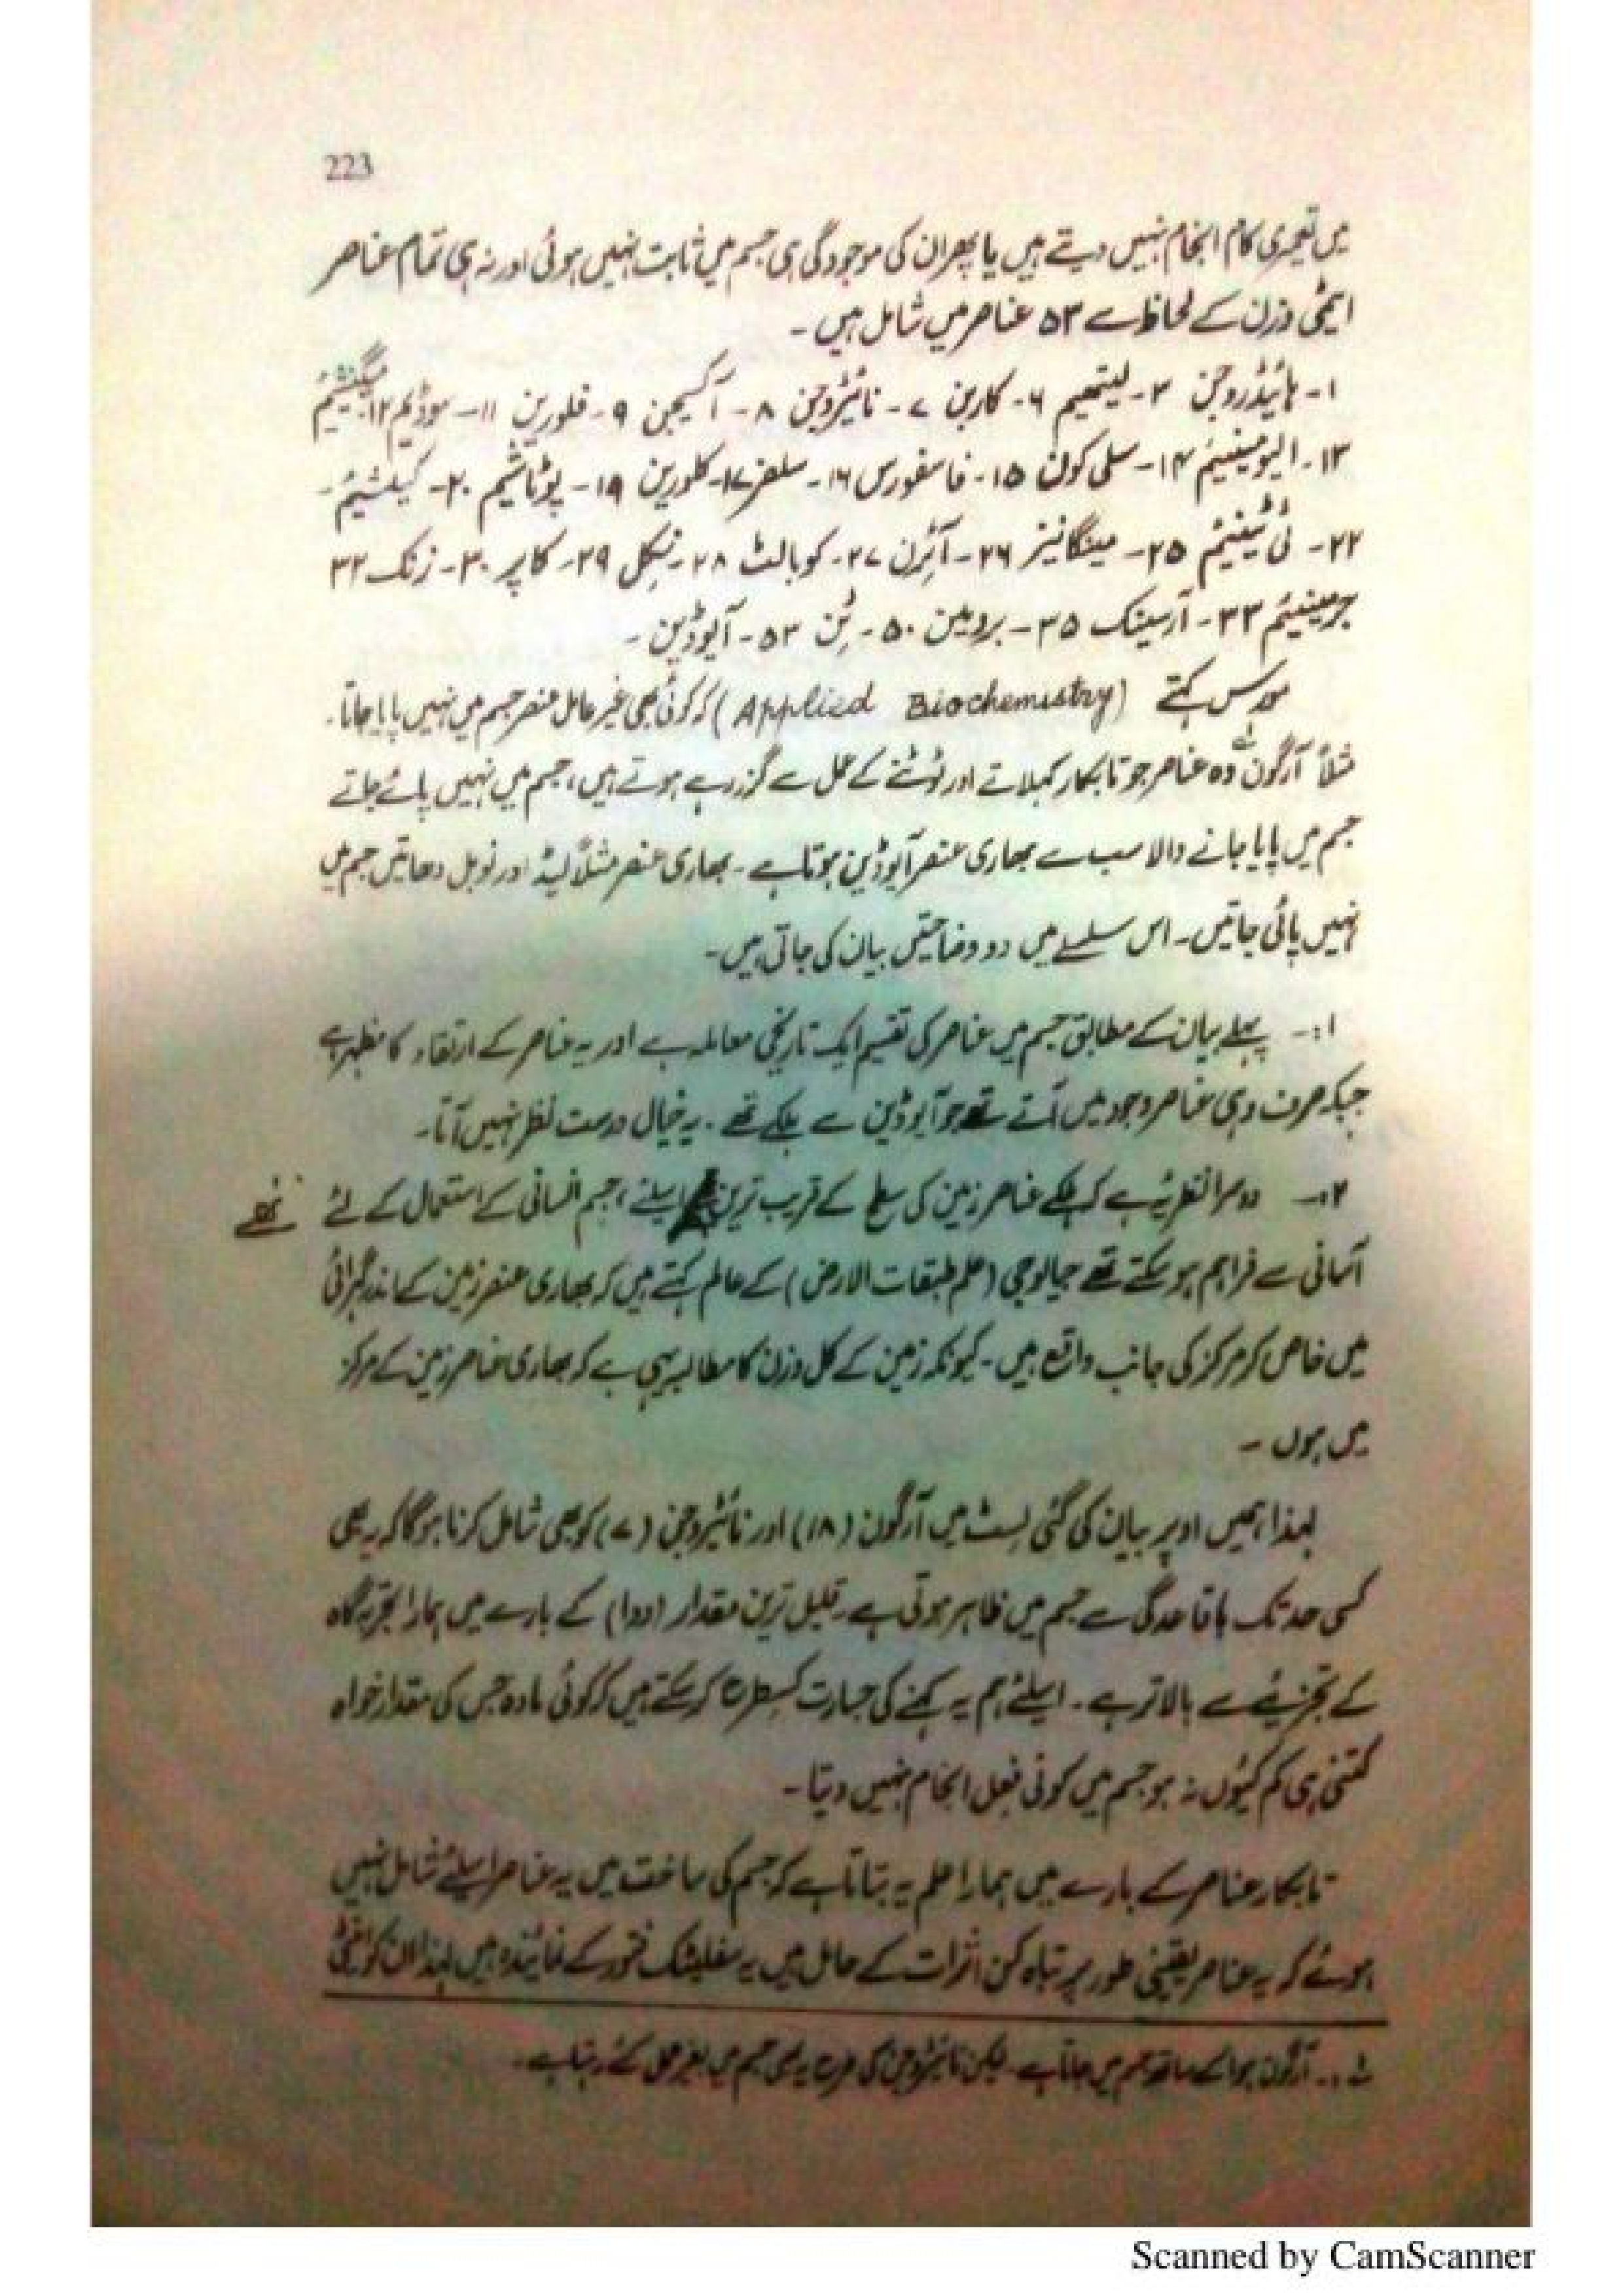 223
میں تعمیری کام انجام نہیں دیتے ہیں یا پھر ان کی موجودگی ہی جسم میں ثابت نہیں ہوئی اور نہ ہی تمام عناصر
ایٹمی وزن کے لحاظ سے ۵۳ عناصر میں شامل ہیں ۔
۱- ہائیڈروجن ۳- لیتھیم ۶- کاربن ۷- نائٹروجن ۸- آکسیجن ۹- فلورین ۱۱- سوڈیم ۱۲- میگنیشیم
۱۳- الیومینیئم ۱۴- سلی کون ۱۵- فاسفورس ۱۶- سلفر ۱۷- کلورین ۱۹- پوٹاشیم ۲۰- کیلشیم -
۲۲- ٹی ٹینیئم ۲۵- مینگانیز ۲۶- آئرن ۲۷- کوبالٹ ۲۸- نِکل ۲۹- کاپر ۳۰- زنک ۳۲
جرمینیئم ۳۳- آرسینک ۳۵- برومین ۵۰- ٹِن ۵۳- آیوڈین -
مورس کہتے (Applied Biochemistry) کہ کوئی بھی غیر عامل عنصر جسم میں نہیں پایا جاتا۔
مثلاً آرگون وہ عناصر جو تابکار کہلاتے اور ٹوٹنے کے عمل سے گزر رہے ہوتے ہیں، جسم میں نہیں پائے جاتے
جسم میں پایا جانے والا سب سے بھاری عنصر آیوڈین ہوتا ہے ۔ بھاری عنصر مثلاً لیڈ اور نوبل دھاتیں جسم میں
نہیں پائی جاتیں۔ اس سلسلے میں دو وضاحتیں بیان کی جاتی ہیں۔
۱:- پہلے بیان کے مطابق جسم میں عناصر کی تقسیم ایک تاریخی معاملہ ہے اور یہ عناصر کے ارتقاء کا مظہر ہے
جبکہ صرف وہی عناصر وجود میں آتے تھے جو آیوڈین سے ہلکے تھے ۔ یہ خیال درست نظر نہیں آتا۔
۲:- دوسرا نظریہ ہے کہ ہلکے عناصر زمین کی سطح کے قریب ترین تھے اسلئے، جسم انسانی کے استعمال کے لئے
آسانی سے فراہم ہو سکتے تھے جیالوجی (علم طبقات الارض) کے عالم کہتے ہیں کہ بھاری عنصر زمین کے اندر گہرائی
میں خاص کر مرکز کی جانب واقع ہیں ۔ کیونکہ زمین کے کل وزن کا مطالبہ یہی ہے کہ بھاری عناصر زمین کے مرکز
میں ہوں ۔
لہذا ہمیں اوپر بیان کی گئی لسٹ میں آرگون (۱۸) اور نائٹروجن (۷) کو بھی شامل کرنا ہوگا کہ یہ بھی
کسی حد تک باقاعدگی سے جسم میں ظاہر ہوتی ہے ۔ قلیل ترین مقدار (دوا) کے بارے میں ہمارا تجربہ گاہ
کے تجزیئے سے بالاتر ہے ۔ اسلئے ہم یہ کہنے کی جسارت کسطرح کر سکتے ہیں کہ کوئی مادہ جس کی مقدار خواہ
کتنی ہی کم کیوں نہ ہو جسم میں کوئی فعل انجام نہیں دیتا ۔
تابکار عناصر کے بارے میں ہمارا علم یہ بتاتا ہے کہ جسم کی ساخت میں یہ عناصر اسلئے شامل نہیں
ہوئے کہ یہ عناصر یقینی طور پر تباہ کن اثرات کے حامل ہیں یہ سفلیٹک فتور کے نمائندہ ہیں لہذا ان کو
آرگون ہوا کے ساتھ جسم میں جاتا ہے ۔ لیکن نائٹروجن کی طرح یہ بھی جسم میں بغیر عمل کئے رہتا ہے ۔
Scanned by CamScanner